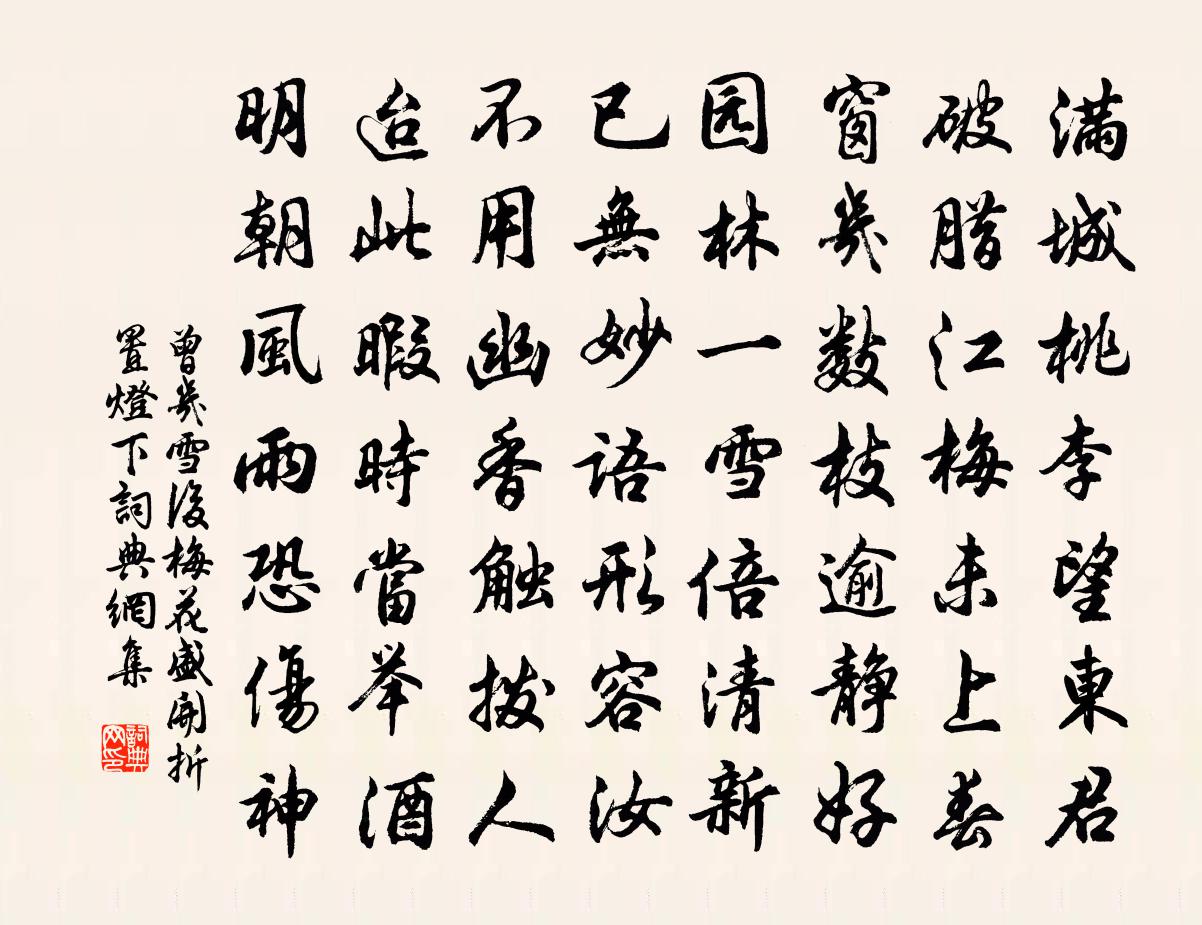 滿城桃李望東君
破腊江梅未上春
窗幾数枝逾静好
园林一雪倍清新
已無妙語形容汝
不用幽香触拨人
迨此暇時當举酒
明朝風雨恐傷神
曾幾雪後梅花盛開折
置燈下詞典網集
詞典网印